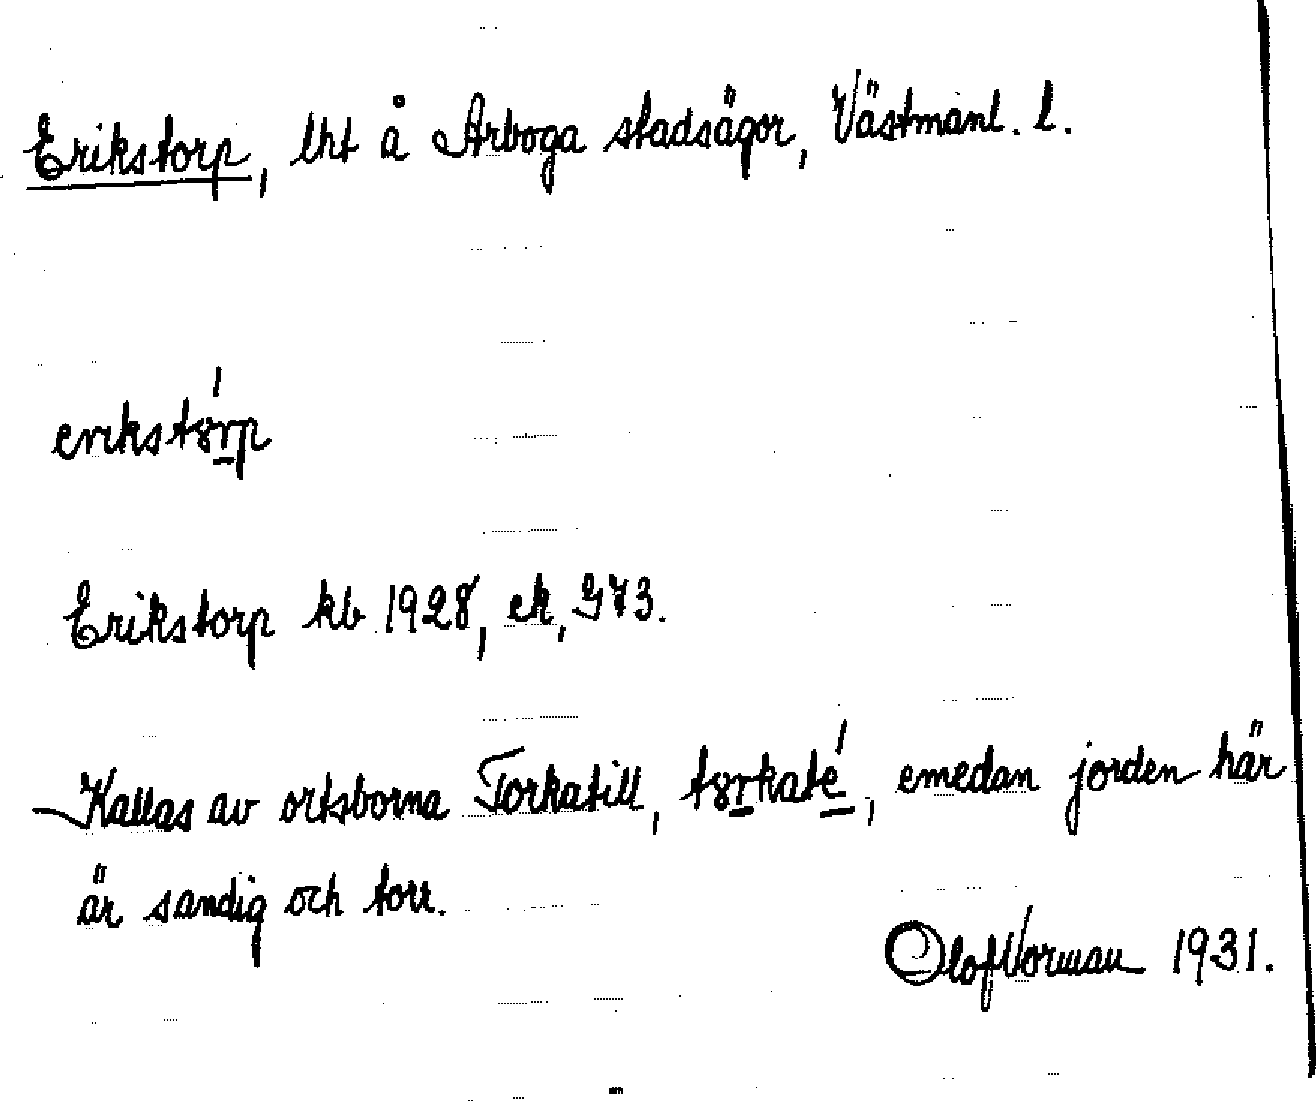 Erikstorp, lht å Arboga stadsägor, Västmanl. l.
erikstórp
Erikstorp kb 1928, ek, G73.
Kallas av ortsborna Torkatill, torkaté, emedan jorden här
är sandig och torr.
Olof Vorman 1931.